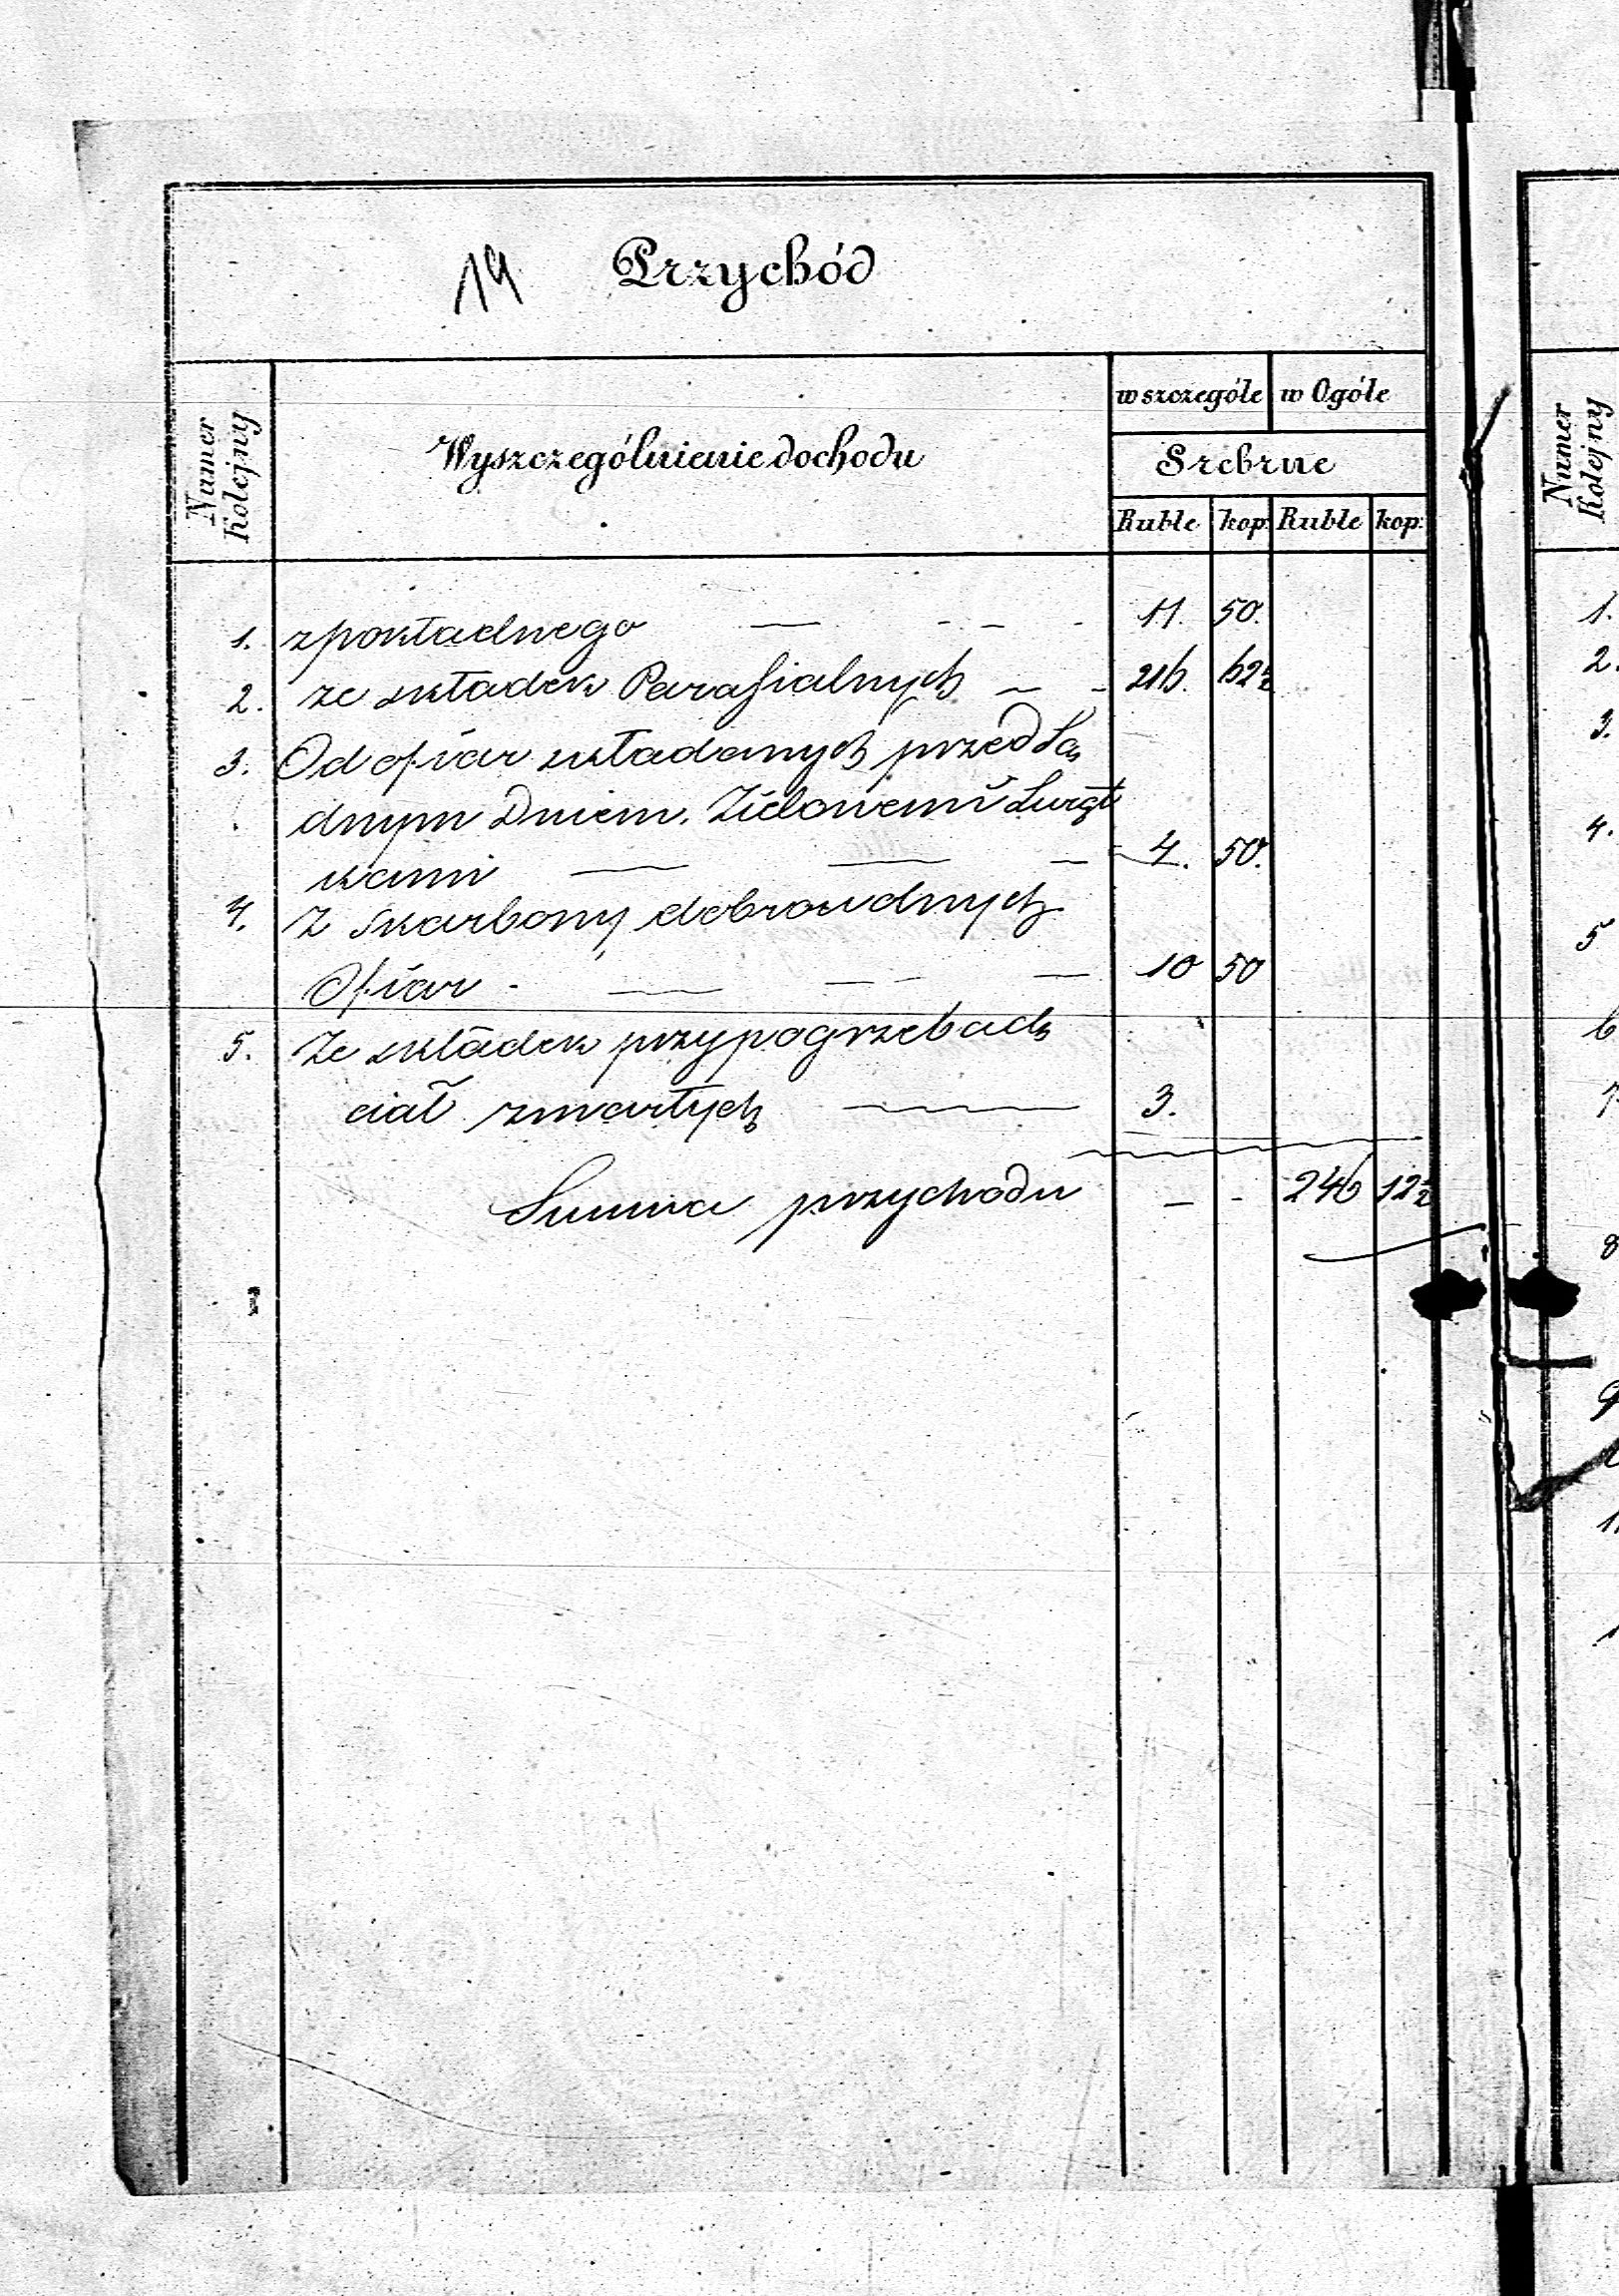 19 Przychód
Numer Kolejny
Wyszczególnienie dochodu
w szczególe w Ogóle
Srebrne
Ruble kop: Ruble kop:
1. z pokładnego — - - - 11. 50.
2. ze składek Parafialnych — - 216. 62½
3. Od ofiar składanych przed Są
dnym Dniem, Zielonemi Swiąt
kami — — — 4. 50.
4. Z Skarbony dobrowolnych
Ofiar - — — — 10 50
5. Ze składek przy pogrzebach
ciał zmarłych — 3.
Summa przychodu — - 246 12½
Numer Kolejny
1.
2.
3.
4.
5
6
7
8
9